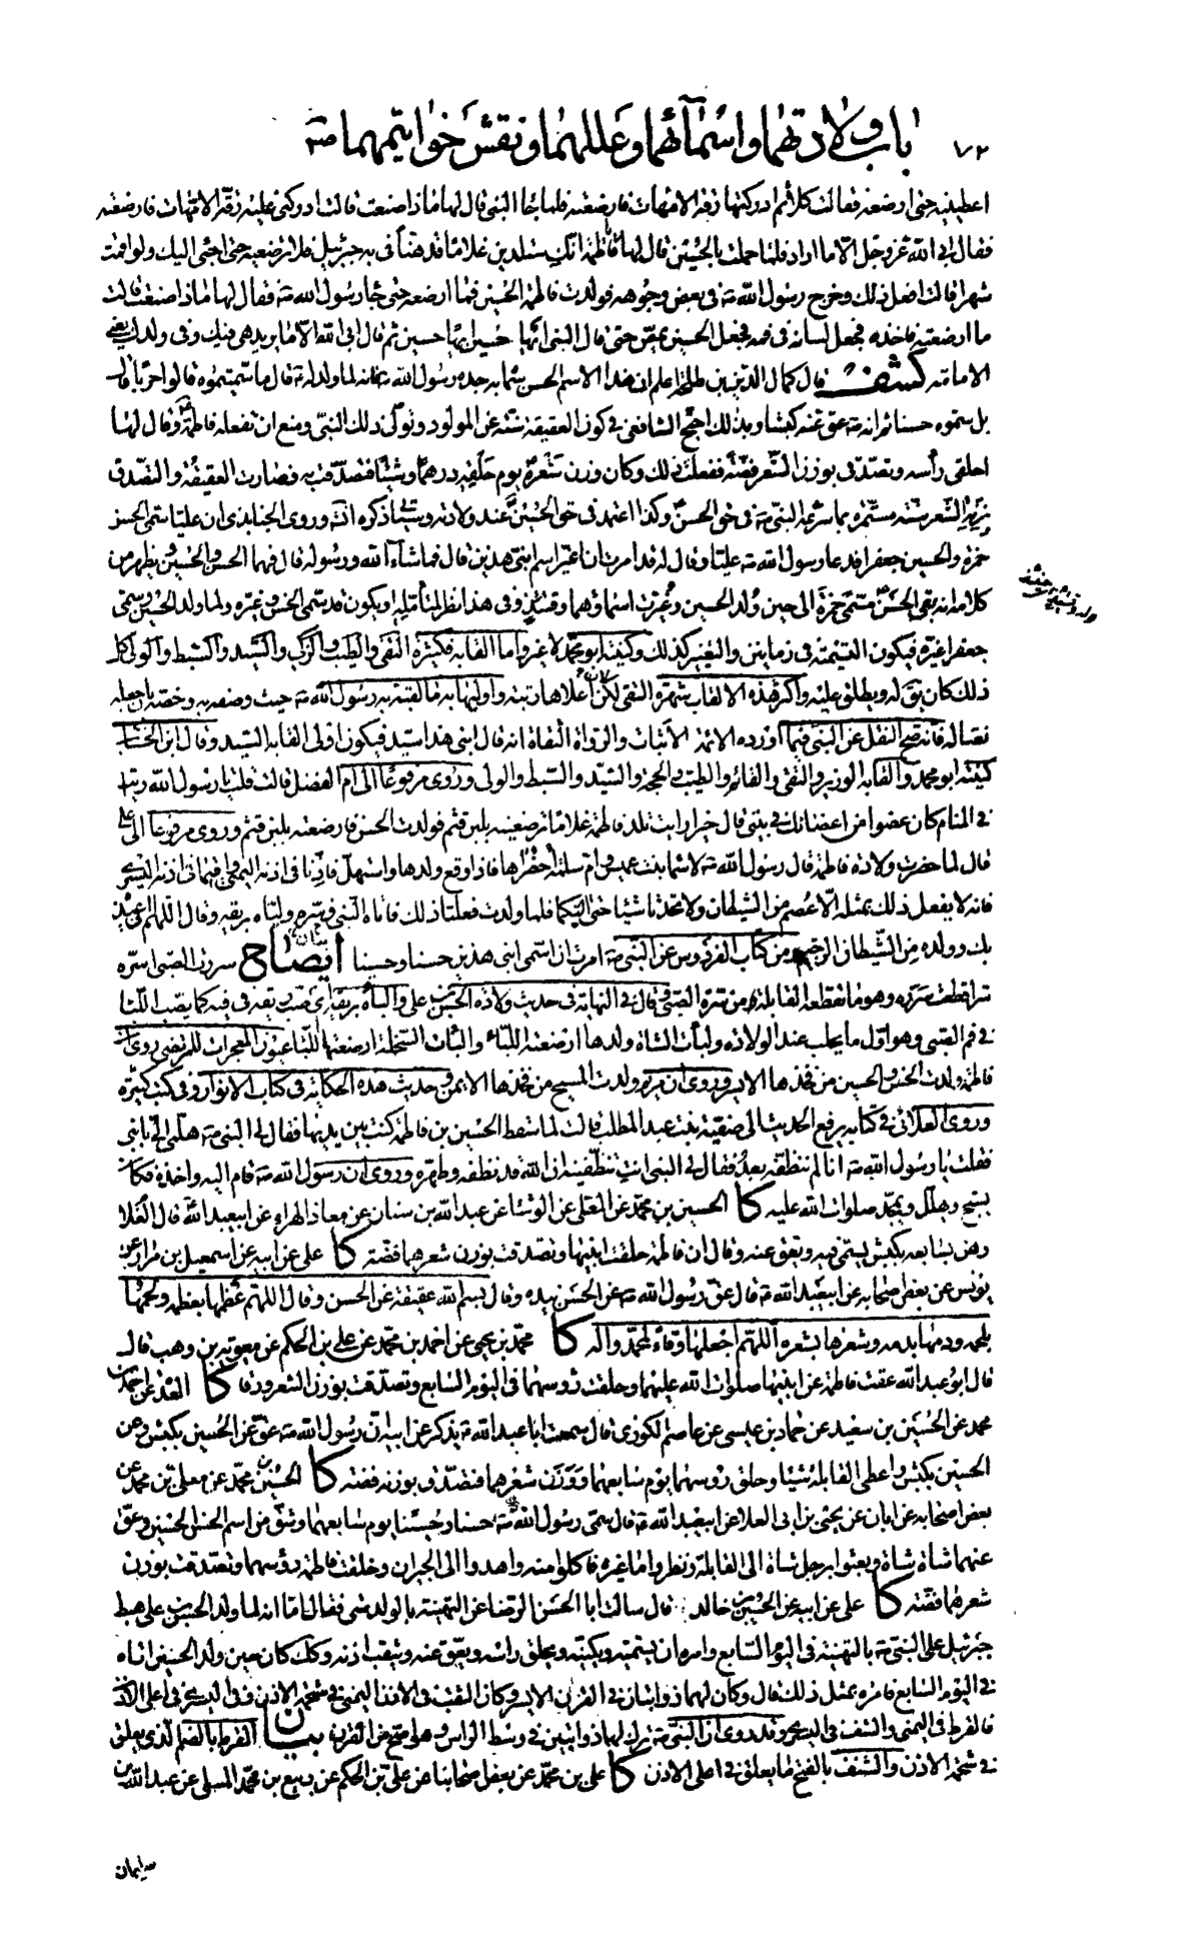 ٧٢ باب ولادتهما واسمآئهما وعللهما ونقش خواتيمهما صة
اعطينيه حتى ارضعه فقالت كلا ثم ادركتها رقة الامهات فارضعته فلما جاء النبى قال لها ماذا صنعت قالت ادركنى عليه رقة الامهات فارضعته
فقال ابى الله عز وجل الا ما اراد فلما حملت بالحسين قال لها يا فاطمة انك ستلدين غلاما قد هنأنى به جبرئيل فلا ترضعيه حتى اجئ اليك ولو اقمت
شهرا قالت افعل ذلك وخرج رسول الله صة فى بعض وجوهه فولدت فاطمة الحسين فما ارضعته حتى جاء رسول الله صة فقال لها ماذا صنعت قالت
ما ارضعته فاخذه فجعل لسانه فى فمه فجعل الحسين يمص حتى قال النبى ايها حسين ايها حسين ثم قال ابى الله الا ما يريد هى فيك وفى ولدك يعنى
الامامة كشف قال كمال الدين بن طلحة اعلم ان هذا الاسم الحسن سماه به جده رسول الله صة فانه لما ولد له قال ما سميتموه قالوا حربا قال
بل سموه حسنا ثم انه صة عق عنه كبشا وبذلك احتج الشافعى فى كون العقيقة سنة عن المولود وتولى ذلك النبى ومنع ان تفعله فاطمة وقال لها
احلقى رأسه وتصدقى بوزن الشعر فضة ففعلت ذلك وكان وزن شعره يوم حلقه درهما وشيئا فتصدقت به فصارت العقيقة والتصدق
بزنة الشعر سنة مستمرة بما شرعه النبى صة فى حق الحسن وكذا اعتمد فى حق الحسين عند ولادته وسيأتى ذكره انشاء وروى الجنابذى ان عليا سمى الحسن
حمزة والحسين جعفرا فدعا رسول الله صة عليا وقال له قد امرت ان اغير اسم ابنى هذين قال فما شاء الله ورسوله قال فهما الحسن والحسين ويظهر من
كلامه انه بقى الحسن مسمى حمزة الى حين ولد الحسين وغيرت اسماؤهما وقتئذ وفى هذا نظر لمتأمله او يكون قد سمى الحسن وغيره ولما ولد الحسين وسمى
جعفرا غيره فيكون التسمية فى زمانين والتغيير كذلك وكنيته ابو محمد لا غير واما القابه فكثيرة التقى والطيب والزكى والسيد والسبط والولى كل
ذلك كان يق له ويطلق عليه واكثر هذه الالقاب شهرة التقى لكن اعلاها رتبة واوليها به ما لقبه به رسول الله صة حيث وصفه به وخصه بان جعله
نعتا له فانه صح النقل عن النبى فيما اورده الائمة الاثبات والرواة الثقاة انه قال ابنى هذا سيد فيكون اولى القابه السيد وقال ابن الخشاب
كنيته ابو محمد والقابه الوزير والتقى والقائم والطيب والحجة والسيد والسبط والولى وروى مرفوعا الى ام الفضل قالت قلت يا رسول الله رأيت
فى المنام كان عضوا من اعضائك فى بيتى قال خيرا رأيت تلد فاطمة غلاما ترضعينه بلبن قثم فولدت الحسن فارضعته بلبن قثم وروى مرفوعا الى على
قال لما حضرت ولادة فاطمة قال رسول الله صة لاسماء بنت عميس وام سلمة احضراها فاذا وقع ولدها واستهل فاذنا فى اذنه اليمنى واقيما فى اذنه اليسرى
فانه لا يفعل ذلك بمثله الا عصم من الشيطان ولا تحدثا شيئا حتى اتيكما فلما ولدت فعلتا ذلك فاتاه النبى فسره ولباه بريقه وقال اللهم انى اعيذه
بك وولده من الشيطان الرجيم ومن كتاب الفردوس عن النبى صة امرت ان اسمى ابنى هذين حسنا وحسينا ايضاح سررت الصبى اسره
سرا قطعت سرره وهو ما تقطعه القابلة من سرة الصبى قال فى النهاية فى حديث ولادة الحسن بن على والبأه بريقه اى صب ريقه فى فيه كما يصب اللباء
فى فم الصبى وهو اول ما يحلب عند الولادة ولبأت الشاة ولدها ارضعته اللباء والبأت السخلة ارضعتها اللباء عيون المعجزات للمرتضى روى ان
فاطمة ولدت الحسن والحسين من فخذها الايسر وروى ان مريم ولدت المسيح من فخذها الايمن وحديث هذه الحكاية فى كتاب الانوار وفى كتب كثيرة
وروى العلائى فى كتابه يرفع الحديث الى صفية بنت عبد المطلب قالت لما سقط الحسين بن فاطمة كنت بين يديها فقال لى النبى صة هلمى الى بابنى
فقلت يا رسول الله صة انا لم ننظفه بعد فقال لى النبى انت تنظفينه ان الله قد نظفه وطهره وروى ان رسول الله صة قام اليه واخذه فكان
يسبح ويهلل ويمجد صلوات الله عليه كا الحسين بن محمد عن المعلى عن الوشا عن عبد الله بن سنان عن معاذ الهراء عن ابيعبد الله قال الغلام
رهن بسابعه بكبش يسمى فيه ويعق عنه وقال ان فاطمة حلقت ابنيها وتصدقت بوزن شعرهما فضة كا على عن ابيه عن اسمعيل بن مرار عن
يونس عن بعض اصحابه عن ابيعبد الله صة قال عق رسول الله صة عن الحسن بيده وقال بسم الله عقيقة عن الحسن وقال اللهم عظمها بعظمه ولحمها
بلحمه ودمها بدمه وشعرها بشعره اللهم اجعلها وقاء لمحمد وآله كا محمد بن يحيى عن احمد بن محمد عن على بن الحكم عن معوية بن وهب قال
قال ابو عبد الله عقت فاطمة عن ابنيها صلوات الله عليهما وحلقت رؤسهما فى اليوم السابع وتصدقت بوزن الشعر ورقا كا العدة عن احمد بن
محمد عن الحسين بن سعيد عن حماد بن عيسى عن عاصم الكوزى قال سمعت ابا عبد الله صة يذكر عن ابيه ان رسول الله صة عق عن الحسن بكبش وعن
الحسين بكبش واعطى القابلة شيئا وحلق رؤسهما يوم سابعهما ووزن شعرهما فتصدق بوزنه فضة كا الحسين بن محمد عن معلى بن محمد عن
بعض اصحابه عن ابان عن يحيى بن ابى العلا عن ابيعبد الله صة قال سمى رسول الله صة حسنا وحسينا يوم سابعهما وشق من اسم الحسن الحسين وعق
عنهما شاة شاة وبعثوا برجل شاة الى القابلة ونظروا ما غيره فاكلوا منه واهدوا الى الجيران وحلقت فاطمة رؤسهما وتصدقت بوزن
شعرهما فضة كا على عن ابيه عن الحسين بن خالد قال سالت ابا الحسن الرضا عن التهنية بالولد متى فقال اما انه لما ولد الحسن بن على هبط
جبرئيل على النبى صة بالتهنية فى اليوم السابع وامره ان يسميه ويكنيه ويحلق راسه ويعق عنه ويثقب اذنه وكك كان حين ولد الحسين اتاه
فى اليوم السابع فامره بمثل ذلك قال وكان لهما ذوابتان فى القرن الايسر وكان الثقب فى الاذن اليمنى فى شحمة الاذن وفى اليسرى فى اعلى الاذن
فالقرط فى اليمنى والشنف فى اليسرى وقد روى ان النبى صة ترك لهما ذوابتين فى وسط الراس وهو اصح من القرن بيان القرط بالضم الذى يعلق
فى شحمة الاذن والشنف بالفتح ما يعلق فى اعلى الاذن كا على بن محمد عن بعض اصحابنا عن على بن الحكم عن ربيع بن محمد المسلى عن عبد الله بن
سليمان